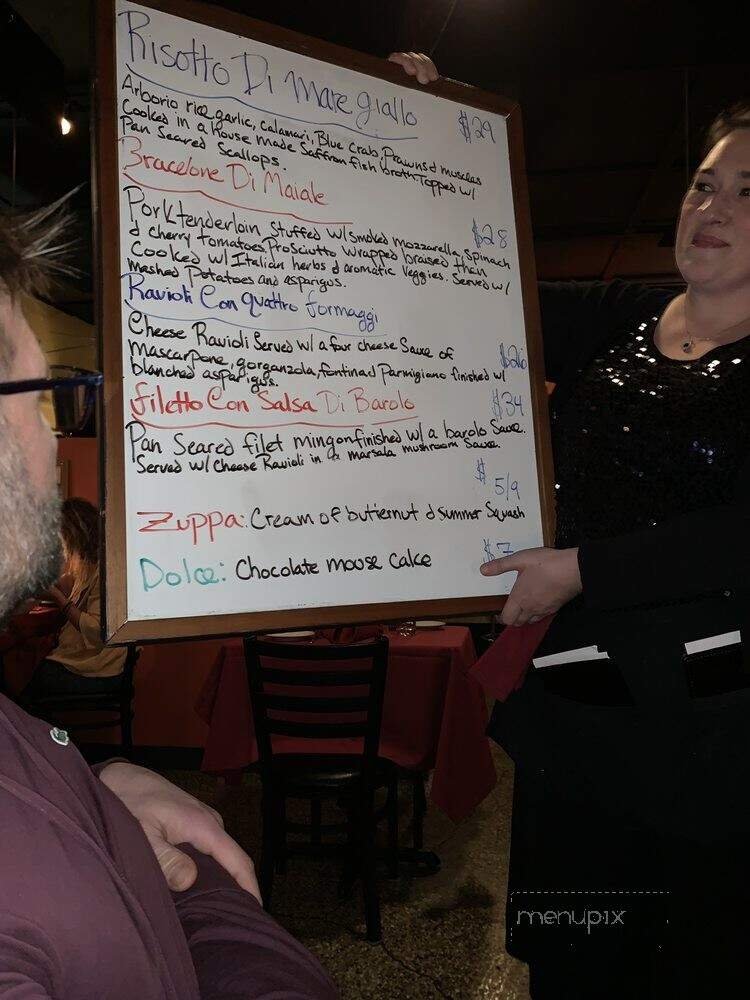 Risotto Di Mare giallo $29
Arborio rice, garlic, Calamari, Blue crab, Prawns & muscles
Cooked in a House made Saffron fish broth. Topped w/
Pan Seared Scallops.
Bracelone Di Maiale $28
Pork tenderloin Stuffed w/ smoked mozzarella, Spinach
& cherry tomatoes, Prosciutto wrapped braised than
Cooked w/ Italian herbs & aromatic veggies. Served w/
mashed Potatoes and asparigus.
Ravioli Con quattro formaggi $26
Cheese Ravioli Served w/ a four cheese Sauce of
mascarpone, gorganzola, fontina & Parmigiano finished w/
blanched asparigus.
filetto Con Salsa Di Barolo $34
Pan Seared filet mingon finished w/ a barolo Sauce.
Served w/ Cheese Ravioli in a marsala mushroom Sauce.
$ 5/9
Zuppa: Cream of butternut & summer Squash
Dolce: Chocolate mouse Cake $7
menupix